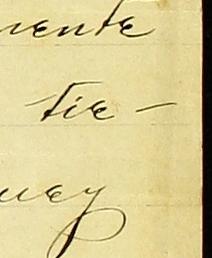 mente
tie-
uey